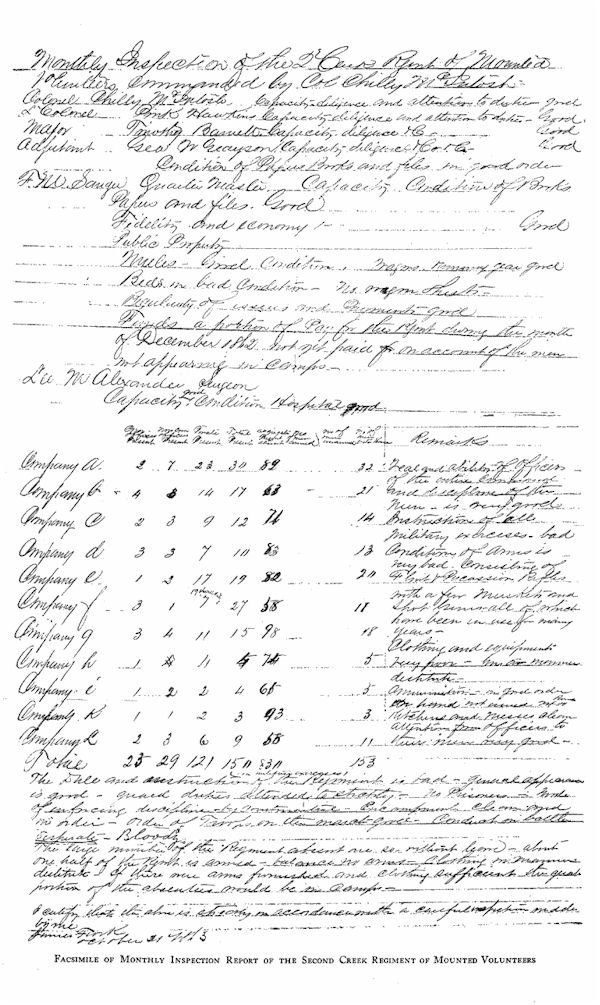 Monthly Inspection of the 2d Creek Regmt of Mounted
Volunteers Commanded by Col Chilly McIntosh
Colonel Chilly McIntosh Capacity diligence and attention to duties good
Lt Colonel Pink Hawkins Capacity diligence and attention to duties - Good
Major Timothy Barnett Capacity diligence &c - Good
Adjutant Geo W Grayson, Capacity diligence &c &c Good
Condition of Papers Books and files in good order
Quarter Master Capacity Condition of Books
Papers and files. Good
Fidelity and economy - Good
Public Property
Mules - Good Condition, Wagons Running gear good
Beds in bad Condition - No wagon Sheets
Regularity of issues and payments good
Funds a portion of Pay for this Regmt during the month
of December 1862 not yet paid for on account of the men
not appearing in Camps
Alexander Surgeon
Capacity good Condition Hospital good
Remarks
Company A. 2 7 23 30 89 32
Zeal and ability of Officers
of the entire Command
Company B 4 3 14 17 63 21
and discipline of the
men - is very good
Company C 2 3 9 12 14
Instruction of all
military exercises - bad
Company D 3 3 7 10 83 13
Condition of Arms is
very bad. Consisting of
Company E 1 2 17 19 82 20
Flint & Percussion Rifles
with a few Muskets and
Company F 3 1 27 58 18
Shot Guns all of which
have been in use for many
years -
Company G 3 4 11 15 98 18
Clothing and equipments
Company H 1 11 5
very poor -
destitute -
Company I 1 2 2 4 65 5
Ammunition - in good order
on hand not issued
Company K 1 1 2 3 93 3
Kitchens and Messes
attention from Officers to
Company L 2 3 6 9 58 11
their men very good -
Total 25 29 121 150 830 153
The Drill and instruction of this Regiment is bad - general appearance
is good - guard duties attended to strictly - No Prisoners - Mode
of enforcing discipline - by - Encampments clean and
in order - order of Troops on the march good - Conduct in battle
desperate - Bloody
The large number of the Regiment absent are so without leave - about
one half of the Regmt is armed - balance no arms - Clothing
destitute - if there were arms furnished and clothing sufficient the great
portion of the absentees would be in Camps -
I certify that the above is strictly in accordance with a careful inspection made
by me
October 21 1863
FACSIMILE OF MONTHLY INSPECTION REPORT OF THE SECOND CREEK REGIMENT OF MOUNTED VOLUNTEERS